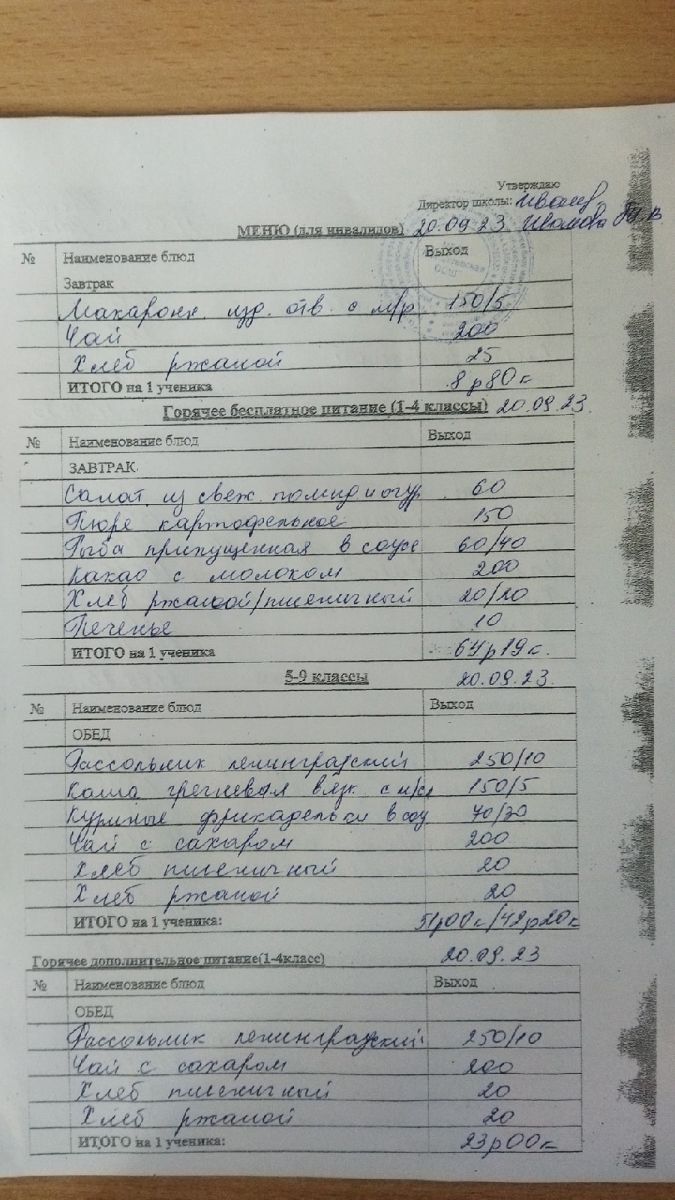 Утверждаю
Директор школы:
МЕНЮ (для инвалидов) 20.09.23. Иванова
№ Наименование блюд Выход
Завтрак
Макарон. изд. отв. с м/р 150/5
Чай 200
Хлеб ржаной 25
ИТОГО на 1 ученика 8р80к
Горячее бесплатное питание (1-4 классы) 20.09.23.
№ Наименование блюд Выход
ЗАВТРАК
Салат из свеж. помид и огур 60
Пюре картофельное 150
Рыба припущенная в соусе 60/40
Какао с молоком 200
Хлеб ржаной/пшеничный 20/20
Печенье 10
ИТОГО на 1 ученика 64р19к.
5-9 классы 20.09.23.
№ Наименование блюд Выход
ОБЕД
Рассольник ленинградский 250/10
Каша гречневая вязк. с м/сл 150/5
Куриные фрикадельки в соу 70/30
Чай с сахаром 200
Хлеб пшеничный 20
Хлеб ржаной 20
ИТОГО на 1 ученика: 51р00к/42р20к
Горячее дополнительное питание(1-4класс) 20.09.23
№ Наименование блюд Выход
ОБЕД
Рассольник ленинградский 250/10
Чай с сахаром 200
Хлеб пшеничный 20
Хлеб ржаной 20
ИТОГО на 1 ученика: 23р00к